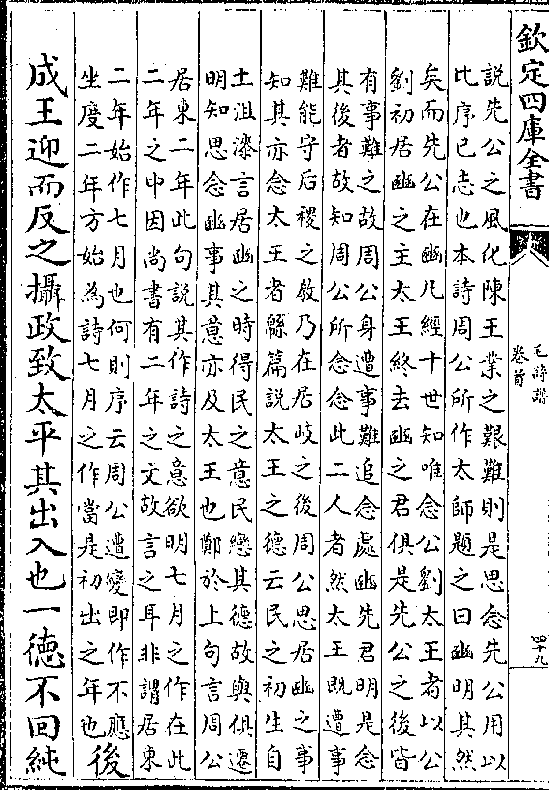 欽定四庫全書
毛詩譜
卷首
四十九
說先公之風化陳王業之艱難則是思念先公用以
比序已志也本詩周公所作太師題之曰豳明其然
矣而先公在豳凡經十世知唯念公劉太王者以公
劉初居豳之主太王終去豳之君俱是先公之後皆
有事難之故周公身遭事難追念處豳先君明是念
其後者故知周公所念念此二人者然太王既遭事
難能守后稷之敎乃在居岐之後周公思居豳之事
知其亦念太王者緜篇說太王之德云民之初生自
土沮漆言居豳之時得民之意民戀其德故與俱遷
明知思念豳事其意亦及太王也鄭於上句言周公
居東二年此句說其作詩之意欲明七月之作在此
二年之中因尚書有二年之文故言之耳非謂居東
二年始作七月也何則序云周公遭變即作不應
坐度二年方始為詩七月之作當是初出之年也後
成王迎而反之攝政致太平其出入也一德不回純